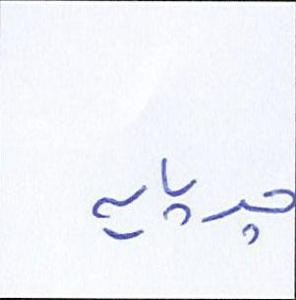 چر پایه